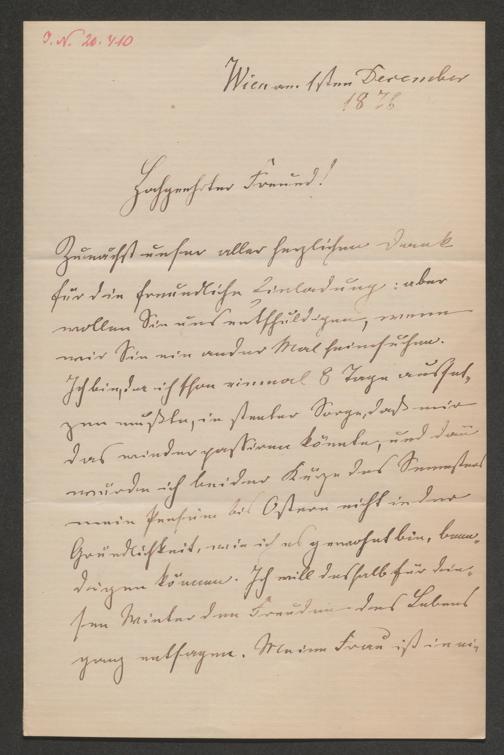 I. N. 20.410
Wien am 1sten December
1876
Hochgeehrter Freund!
Zunächst unser aller herzlichen Dank
für die freundliche Einladung: aber
wollen Sie uns entschuldigen, wenn
wir Sie ein ander Mal heimsuchen.
Ich bin, da ich schon einmal 8 Tage ausset-
zen mußte, in steter Sorge, daß mir
das wieder passiren könnte, und dann
würde ich bei der Kürze des Semesters
mein Pensum bis Ostern nicht in der
Gründlichkeit, wie ich es gewohnt bin, been-
digen können. Ich will deshalb für die-
sen Winter den Freuden des Lebens
ganz entsagen. Meine Frau ist in ei-